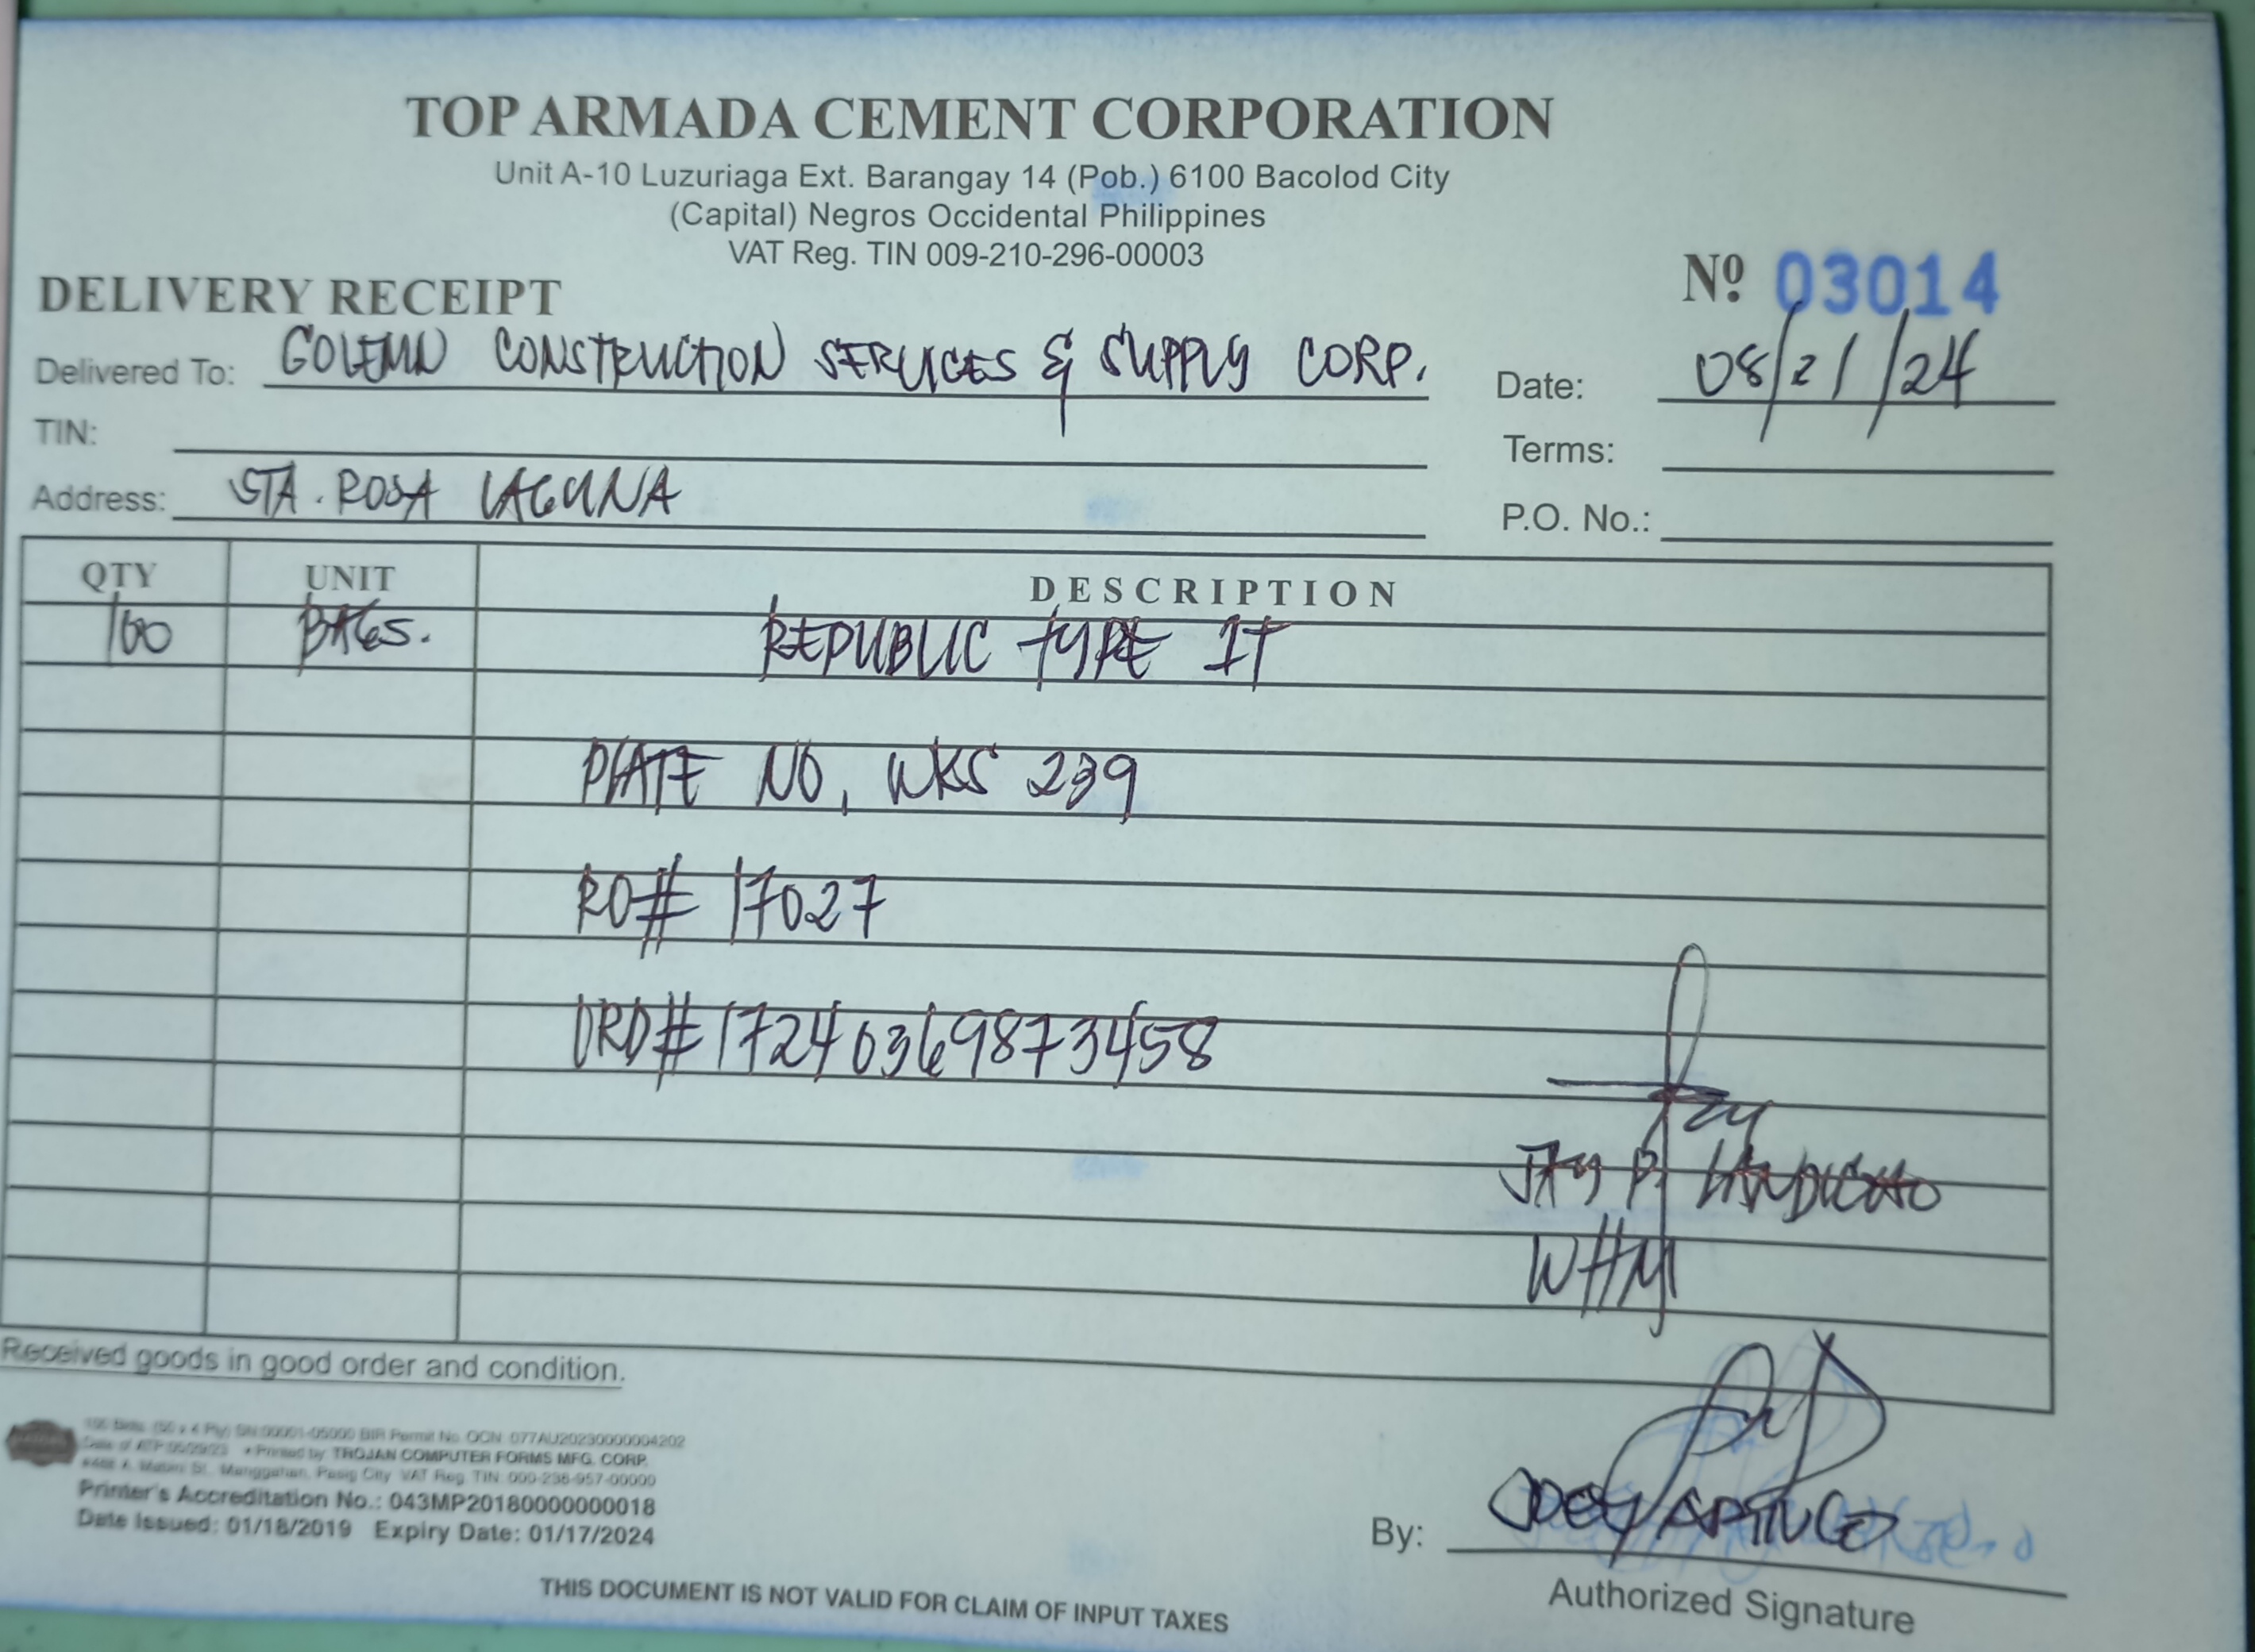 TOP ARMADA CEMENT CORPORATION
Unit A-10 Luzuriaga Ext. Barangay 14 (Pob.) 6100 Bacolod City
(Capital) Negros Occidental Philippines
VAT Reg. TIN 009-210-296-00003
DELIVERY RECEIPT
Nº 03014
Delivered To: GOLEMN CONSTRUCTION SERVICES & SUPPLY CORP.
Date: 08/21/24
TIN:
Terms:
Address: STA. ROSA LAGUNA
P.O. No.:
QTY UNIT DESCRIPTION
100 BAGS. REPUBLIC TYPE IT
PLATE NO. WKS 239
RO# 17027
ORD# 1724036987 3458
JAY P. LANDICHO
WHM
Received goods in good order and condition.
100 Bklts. (50 x 4 Ply) SN:00001-05000 BIR Permit No. OCN 077AU20230000004202
Date of ATP • Printed by: TROJAN COMPUTER FORMS MFG. CORP.
Manggahan, Pasig City VAT Reg. TIN: 000-236-957-00000
Printer's Accreditation No.: 043MP20180000000018
Date Issued: 01/18/2019 Expiry Date: 01/17/2024
By: JOEY APINGO
Authorized Signature
THIS DOCUMENT IS NOT VALID FOR CLAIM OF INPUT TAXES